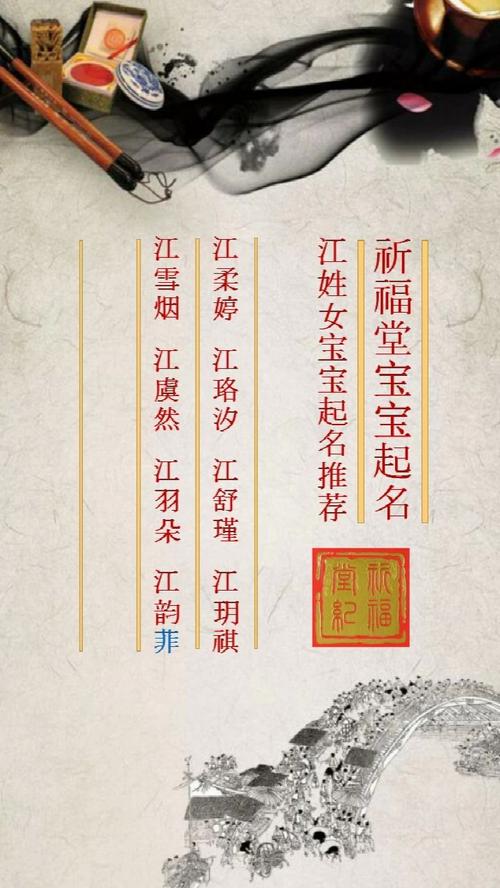 祈福堂宝宝起名
江姓女宝宝起名推荐
祈福
堂紀
江柔婷 江珞汐 江舒瑾 江玥祺
江雪烟 江虞然 江羽朵 江韵菲